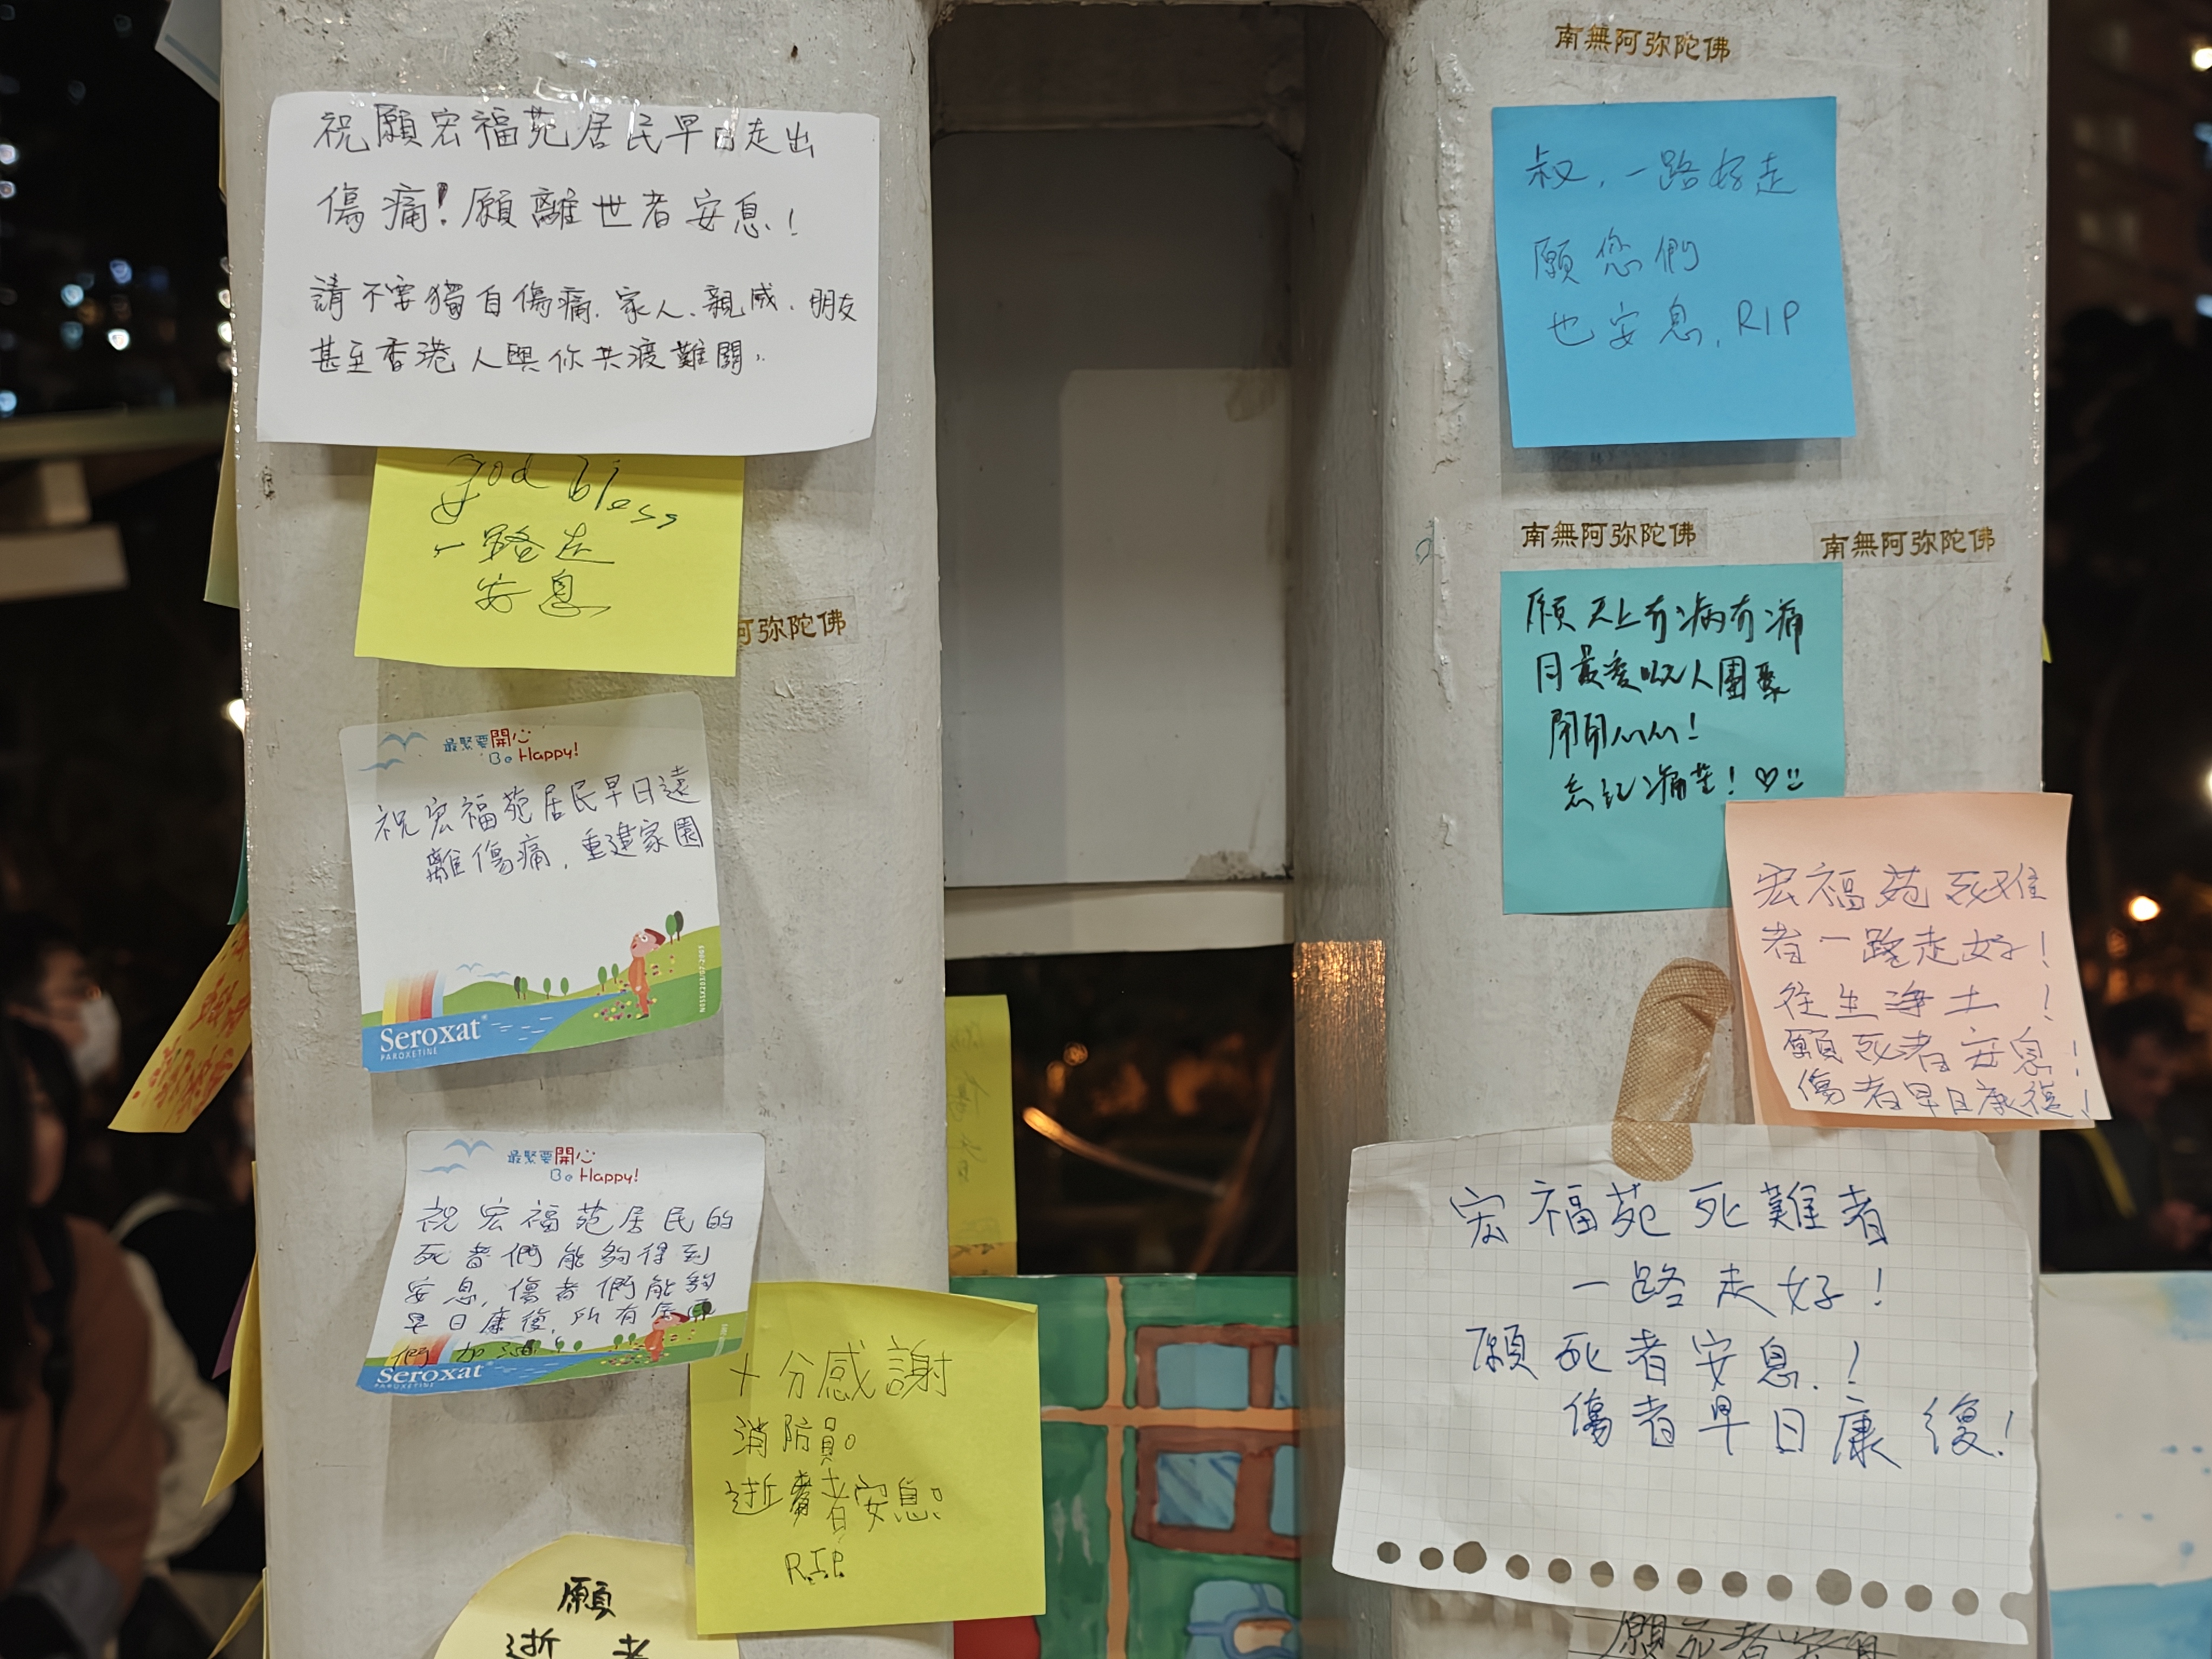 祝願宏福苑居民早日走出
傷痛!願離世者安息!
請不要獨自傷痛.家人.親戚.朋友
甚至香港人與你共渡難關.
god bless
一路走
安息
阿弥陀佛
最緊要開心
Be Happy!
祝宏福苑居民早日遠
離傷痛,重建家園
Seroxat®
PAROXETINE
最緊要開心
Be Happy!
祝宏福苑居民的
死者們能夠得到
安息,傷者們能夠
早日康復,所有居民
們加油!
Seroxat®
PAROXETINE
十分感謝
消防員。
逝者安息。
R.I.P.
願
逝者
南無阿弥陀佛
叔,一路好走
願您們
也安息,RIP
南無阿弥陀佛
南無阿弥陀佛
願天上冇病冇痛
同最愛嘅人團聚
開開心心!
忘記痛苦!♡
宏福苑死难
者一路走好!
往生净土!
願死者安息!
傷者早日康復!
宏福苑死難者
一路走好!
願死者安息.!
傷者早日康復!
願死者安息